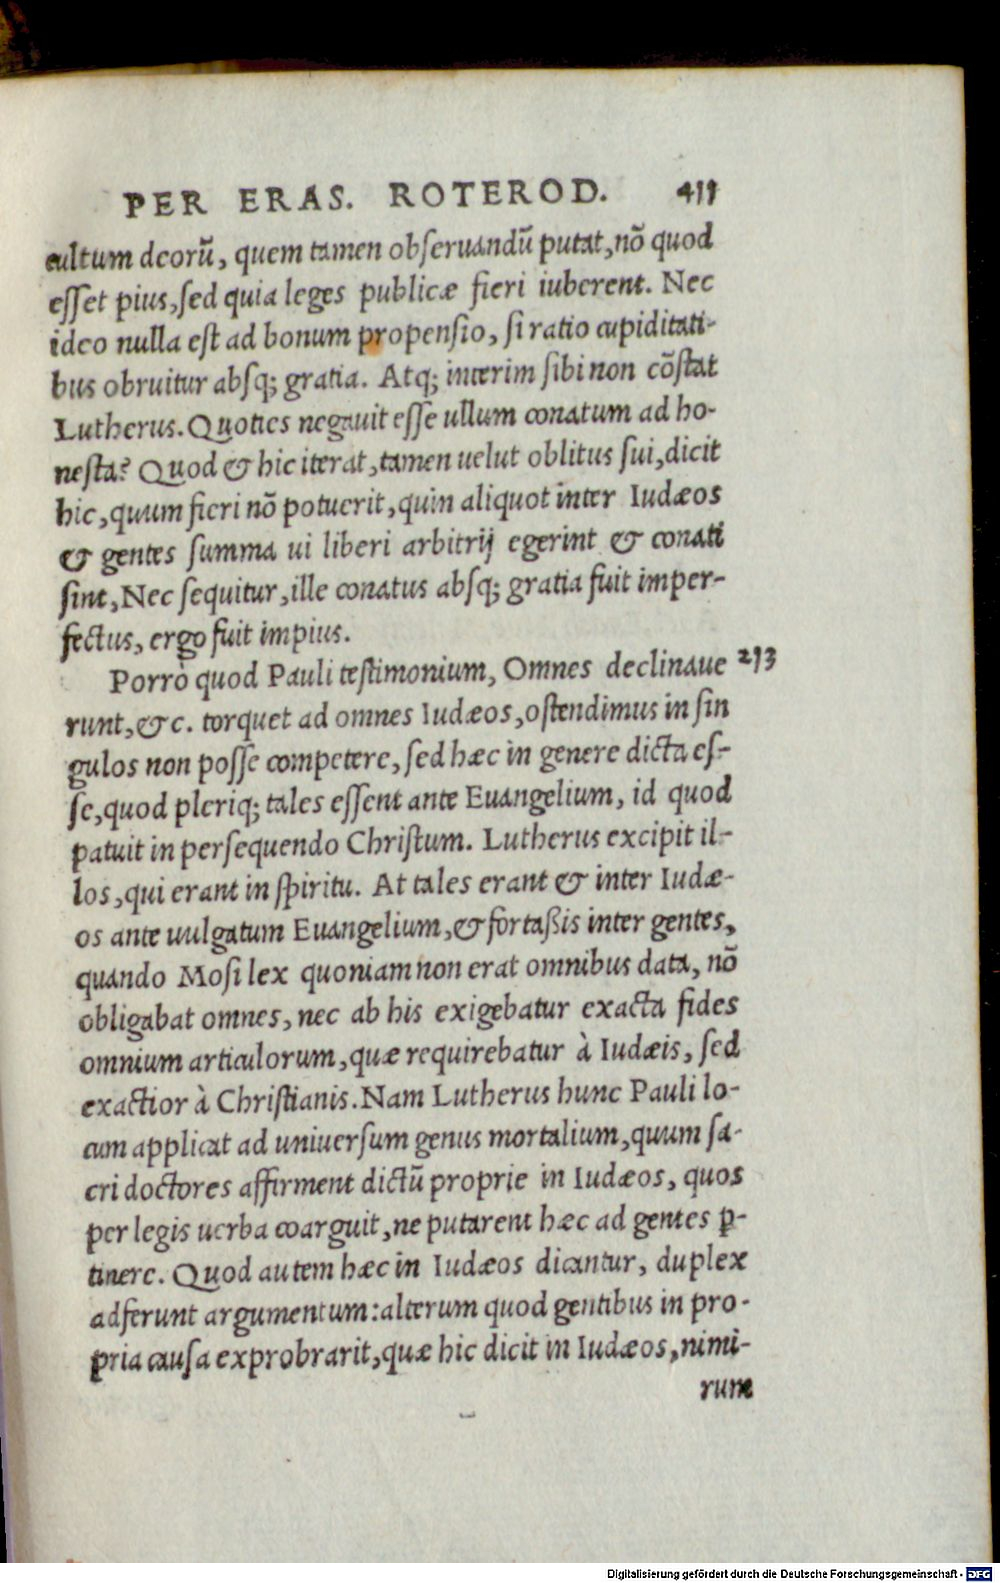 PER ERAS. ROTEROD. 411
cultum deorũ, quem tamen obseruandũ putat, nõ quod
esset pius, sed quia leges publicæ fieri iuberent. Nec
ideo nulla est ad bonum propensio, si ratio cupiditati-
bus obruitur absq; gratia. Atq; interim sibi non cõstat
Lutherus. Quoties negauit esse ullum conatum ad ho-
nesta? Quod & hic iterat, tamen uelut oblitus sui, dicit
hic, quum fieri nõ potuerit, quin aliquot inter Iudæos
& gentes summa ui liberi arbitrij egerint & conati
sint, Nec sequitur, ille conatus absq; gratia fuit imper-
fectus, ergo fuit impius.
Porrò quod Pauli testimonium, Omnes declinaue 213
runt, &c. torquet ad omnes Iudæos, ostendimus in sin
gulos non posse competere, sed hæc in genere dicta es-
se, quod pleriq; tales essent ante Euangelium, id quod
patuit in persequendo Christum. Lutherus excipit il-
los, qui erant in spiritu. At tales erant & inter Iudæ-
os ante uulgatum Euangelium, & fortaßis inter gentes,
quando Mosi lex quoniam non erat omnibus data, nõ
obligabat omnes, nec ab his exigebatur exacta fides
omnium articulorum, quæ requirebatur à Iudæis, sed
exactior à Christianis. Nam Lutherus hunc Pauli lo-
cum applicat ad uniuersum genus mortalium, quum sa-
cri doctores affirment dictũ proprie in Iudæos, quos
per legis uerba coarguit, ne putarent hæc ad gentes ꝑ-
tinere. Quod autem hæc in Iudæos dicantur, duplex
adferunt argumentum: alterum quod gentibus in pro-
pria causa exprobrarit, quæ hic dicit in Iudæos, nimi-
rum
Digitalisierung gefördert durch die Deutsche Forschungsgemeinschaft - DFG